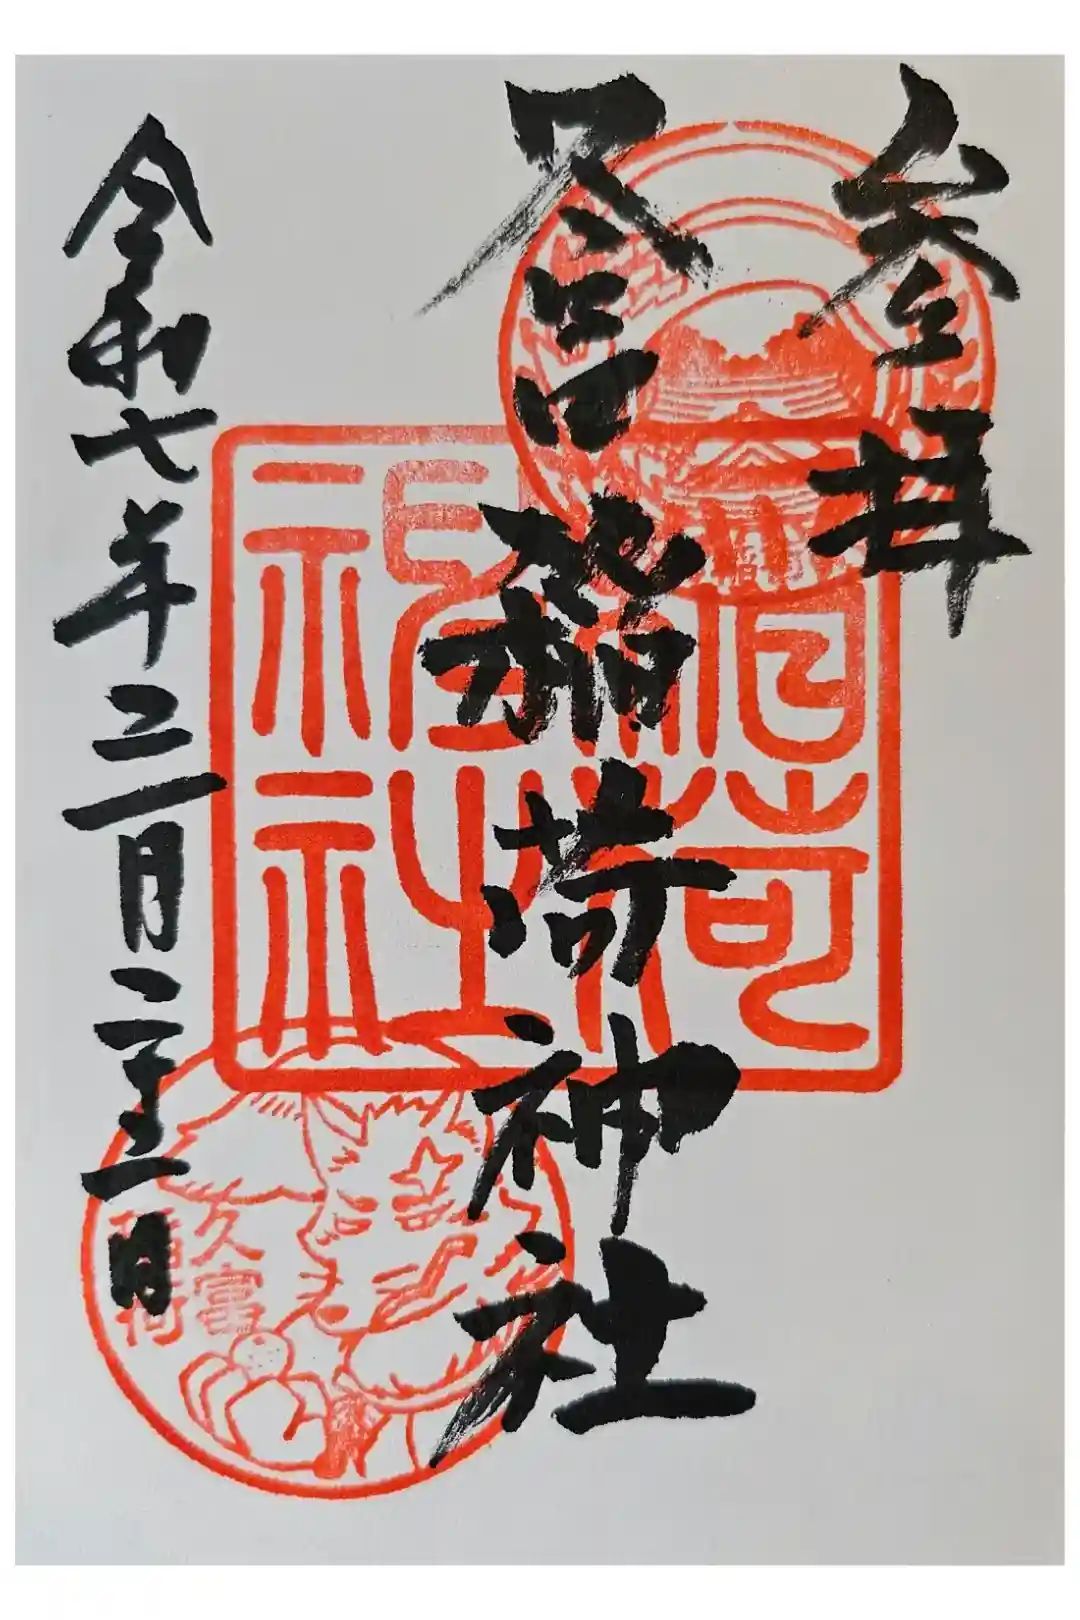 参拝
久富稲荷神社
令和七年三月二十三日
稲荷
神社
久富
稲荷